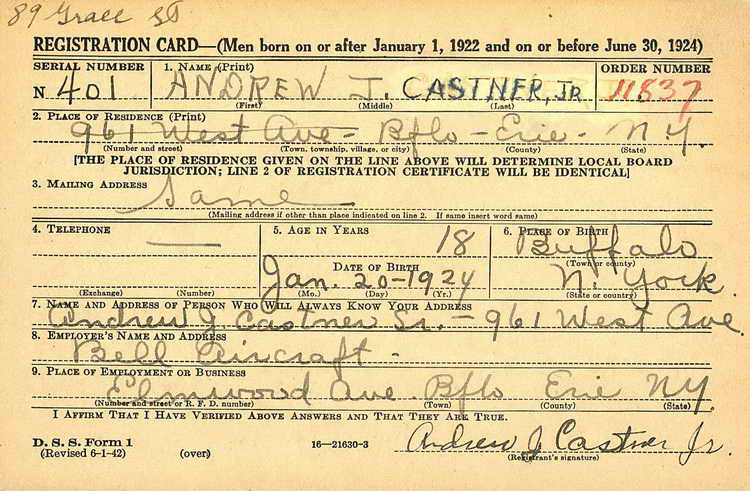 89 Grace St
REGISTRATION CARD—(Men born on or after January 1, 1922 and on or before June 30, 1924)
SERIAL NUMBER 1. NAME (Print) ORDER NUMBER
N 401 ANDREW J. CASTNER, JR 11837
(First) (Middle) (Last)
2. PLACE OF RESIDENCE (Print)
961 West Ave - Bflo - Erie - N.Y.
(Number and street) (Town, township, village, or city) (County) (State)
[THE PLACE OF RESIDENCE GIVEN ON THE LINE ABOVE WILL DETERMINE LOCAL BOARD
JURISDICTION; LINE 2 OF REGISTRATION CERTIFICATE WILL BE IDENTICAL]
3. MAILING ADDRESS
Same
(Mailing address if other than place indicated on line 2. If same insert word same)
4. TELEPHONE 5. AGE IN YEARS 6. PLACE OF BIRTH
— 18 Buffalo
DATE OF BIRTH (Town or county)
Jan. 20-1924 N. York
(Exchange) (Number) (Mo.) (Day) (Yr.) (State or country)
7. NAME AND ADDRESS OF PERSON WHO WILL ALWAYS KNOW YOUR ADDRESS
Andrew J Castner Sr. - 961 West Ave.
8. EMPLOYER'S NAME AND ADDRESS
Bell Aircraft -
9. PLACE OF EMPLOYMENT OR BUSINESS
Elmwood Ave Bflo Erie NY.
(Number and street or R. F. D. number) (Town) (County) (State)
I AFFIRM THAT I HAVE VERIFIED ABOVE ANSWERS AND THAT THEY ARE TRUE.
D. S. S. Form 1
(Revised 6-1-42) (over) 16—21630-3 Andrew J Castner Jr.
(Registrant's signature)